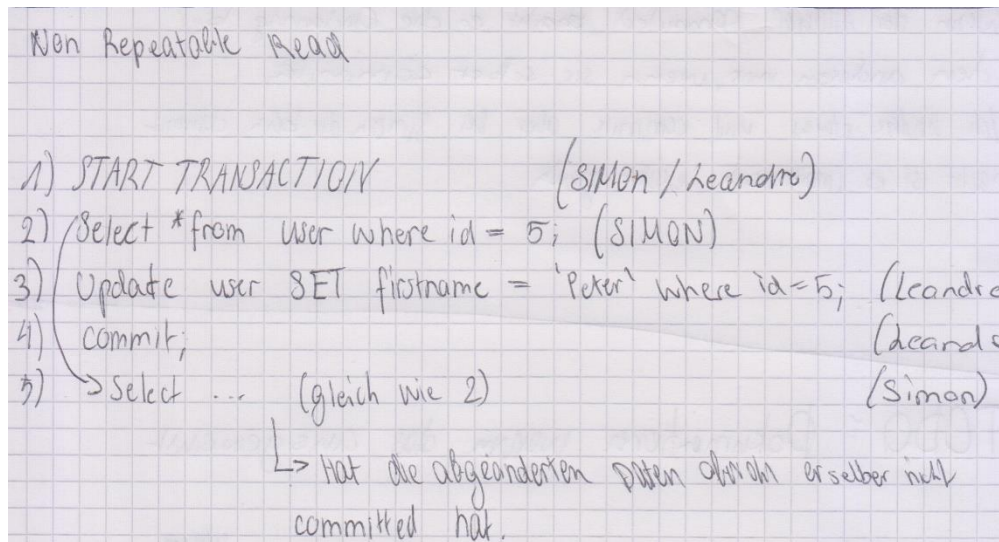 Non Repeatable Read
1) START TRANSACTION (SIMON / Leandro)
2) Select * from user where id = 5; (SIMON)
3) Update user SET firstname = 'Peter' where id=5; (Leandro
4) commit; (Leand
5) Select ... (gleich wie 2) (Simon)
Hat die abgeänderten Daten obwohl er selber nicht
committed hat.